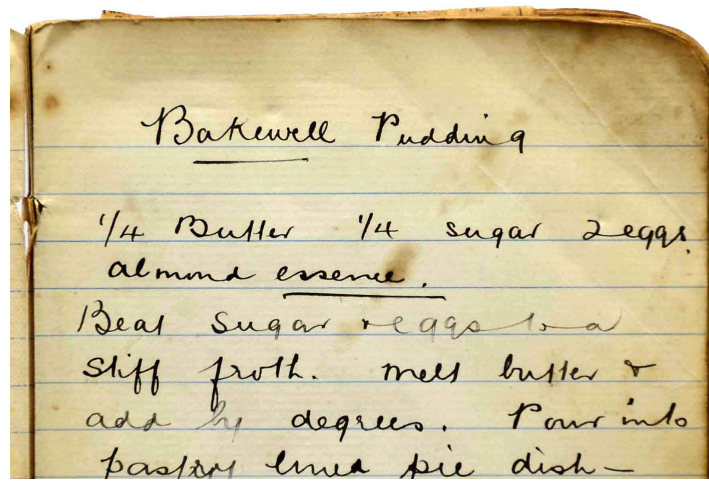 Bakewell Pudding
1/4 Butter 1/4 sugar 2 eggs.
almond essence.
Beat sugar & eggs to a
stiff froth. Melt butter &
add by degrees. Pour into
pastry lined pie dish—